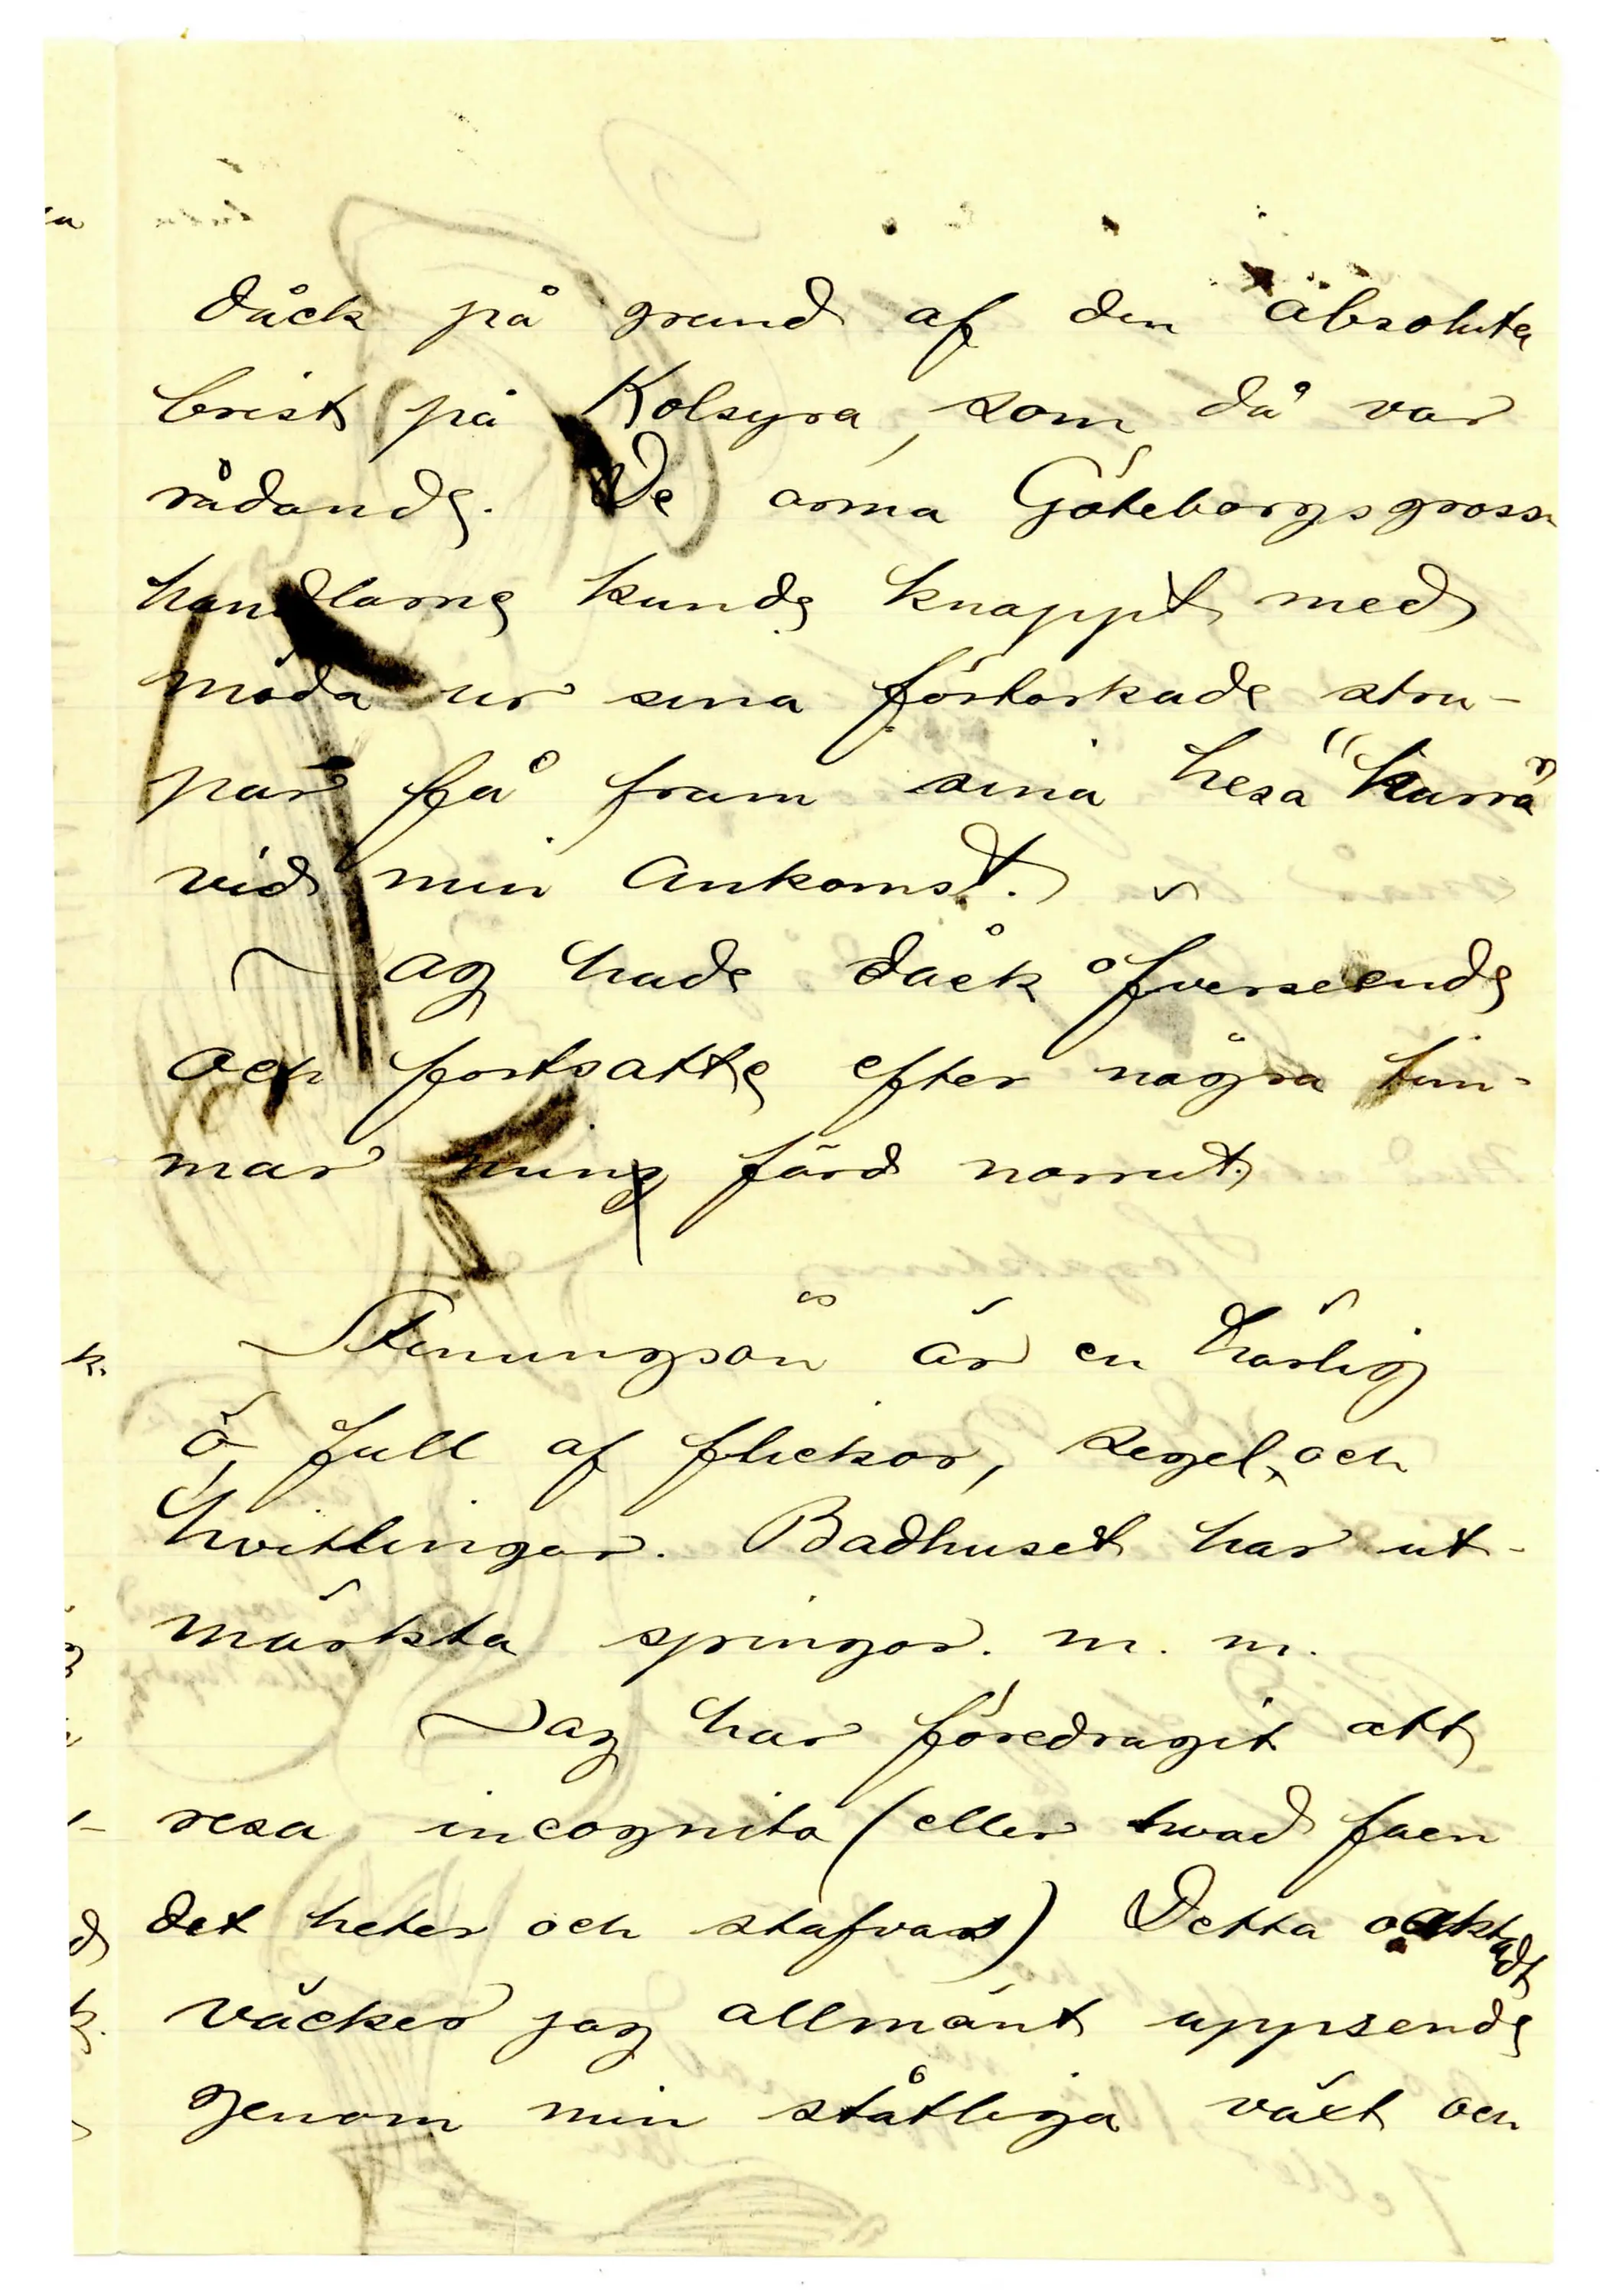 dåck på grund af den absoluta
brist på Kolsyra, som då var
rådande. De arma Göteborgsgross-
handlarne kunde knappt med
möda ur sina förtorkade stru-
par få fram sina hesa "hurra"
vid min ankomst.
Jag hade dåck öfverseende
och fortsatte efter några tim-
mar min färd norrut.
Stenungsön är en härlig
ö, full af flickor, segel, och
hvitlingar. Badhuset har ut-
märkta springor. m. m.
Jag har föredragit att
resa incognito (eller hvad faen
det heter och stafvas) Detta oaktadt
väcker jag allmänt uppseende
genom min ståtliga växt och